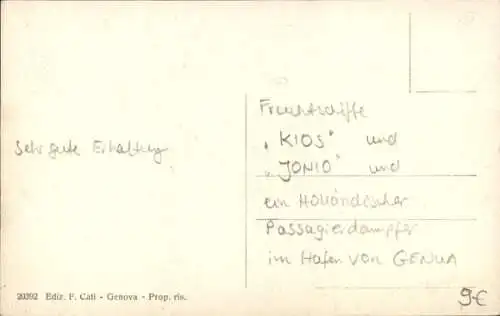 Sehr gute Erhaltung
Frachtschiffe
"KIOS" und
"JONIO" und
ein Holländischer
Passagierdampfer
im Hafen von GENUA
20392 Ediz. F. Cati - Genova - Prop. ris.
9€